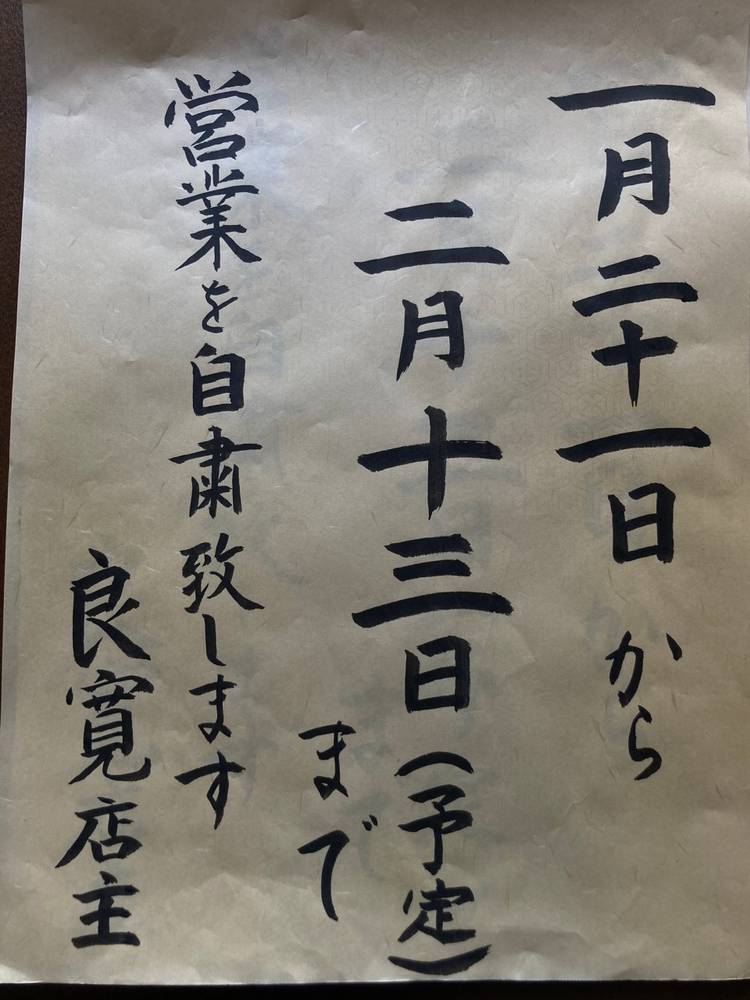 一月二十一日から
二月十三日(予定)
まで
営業を自粛致します
良寛店主